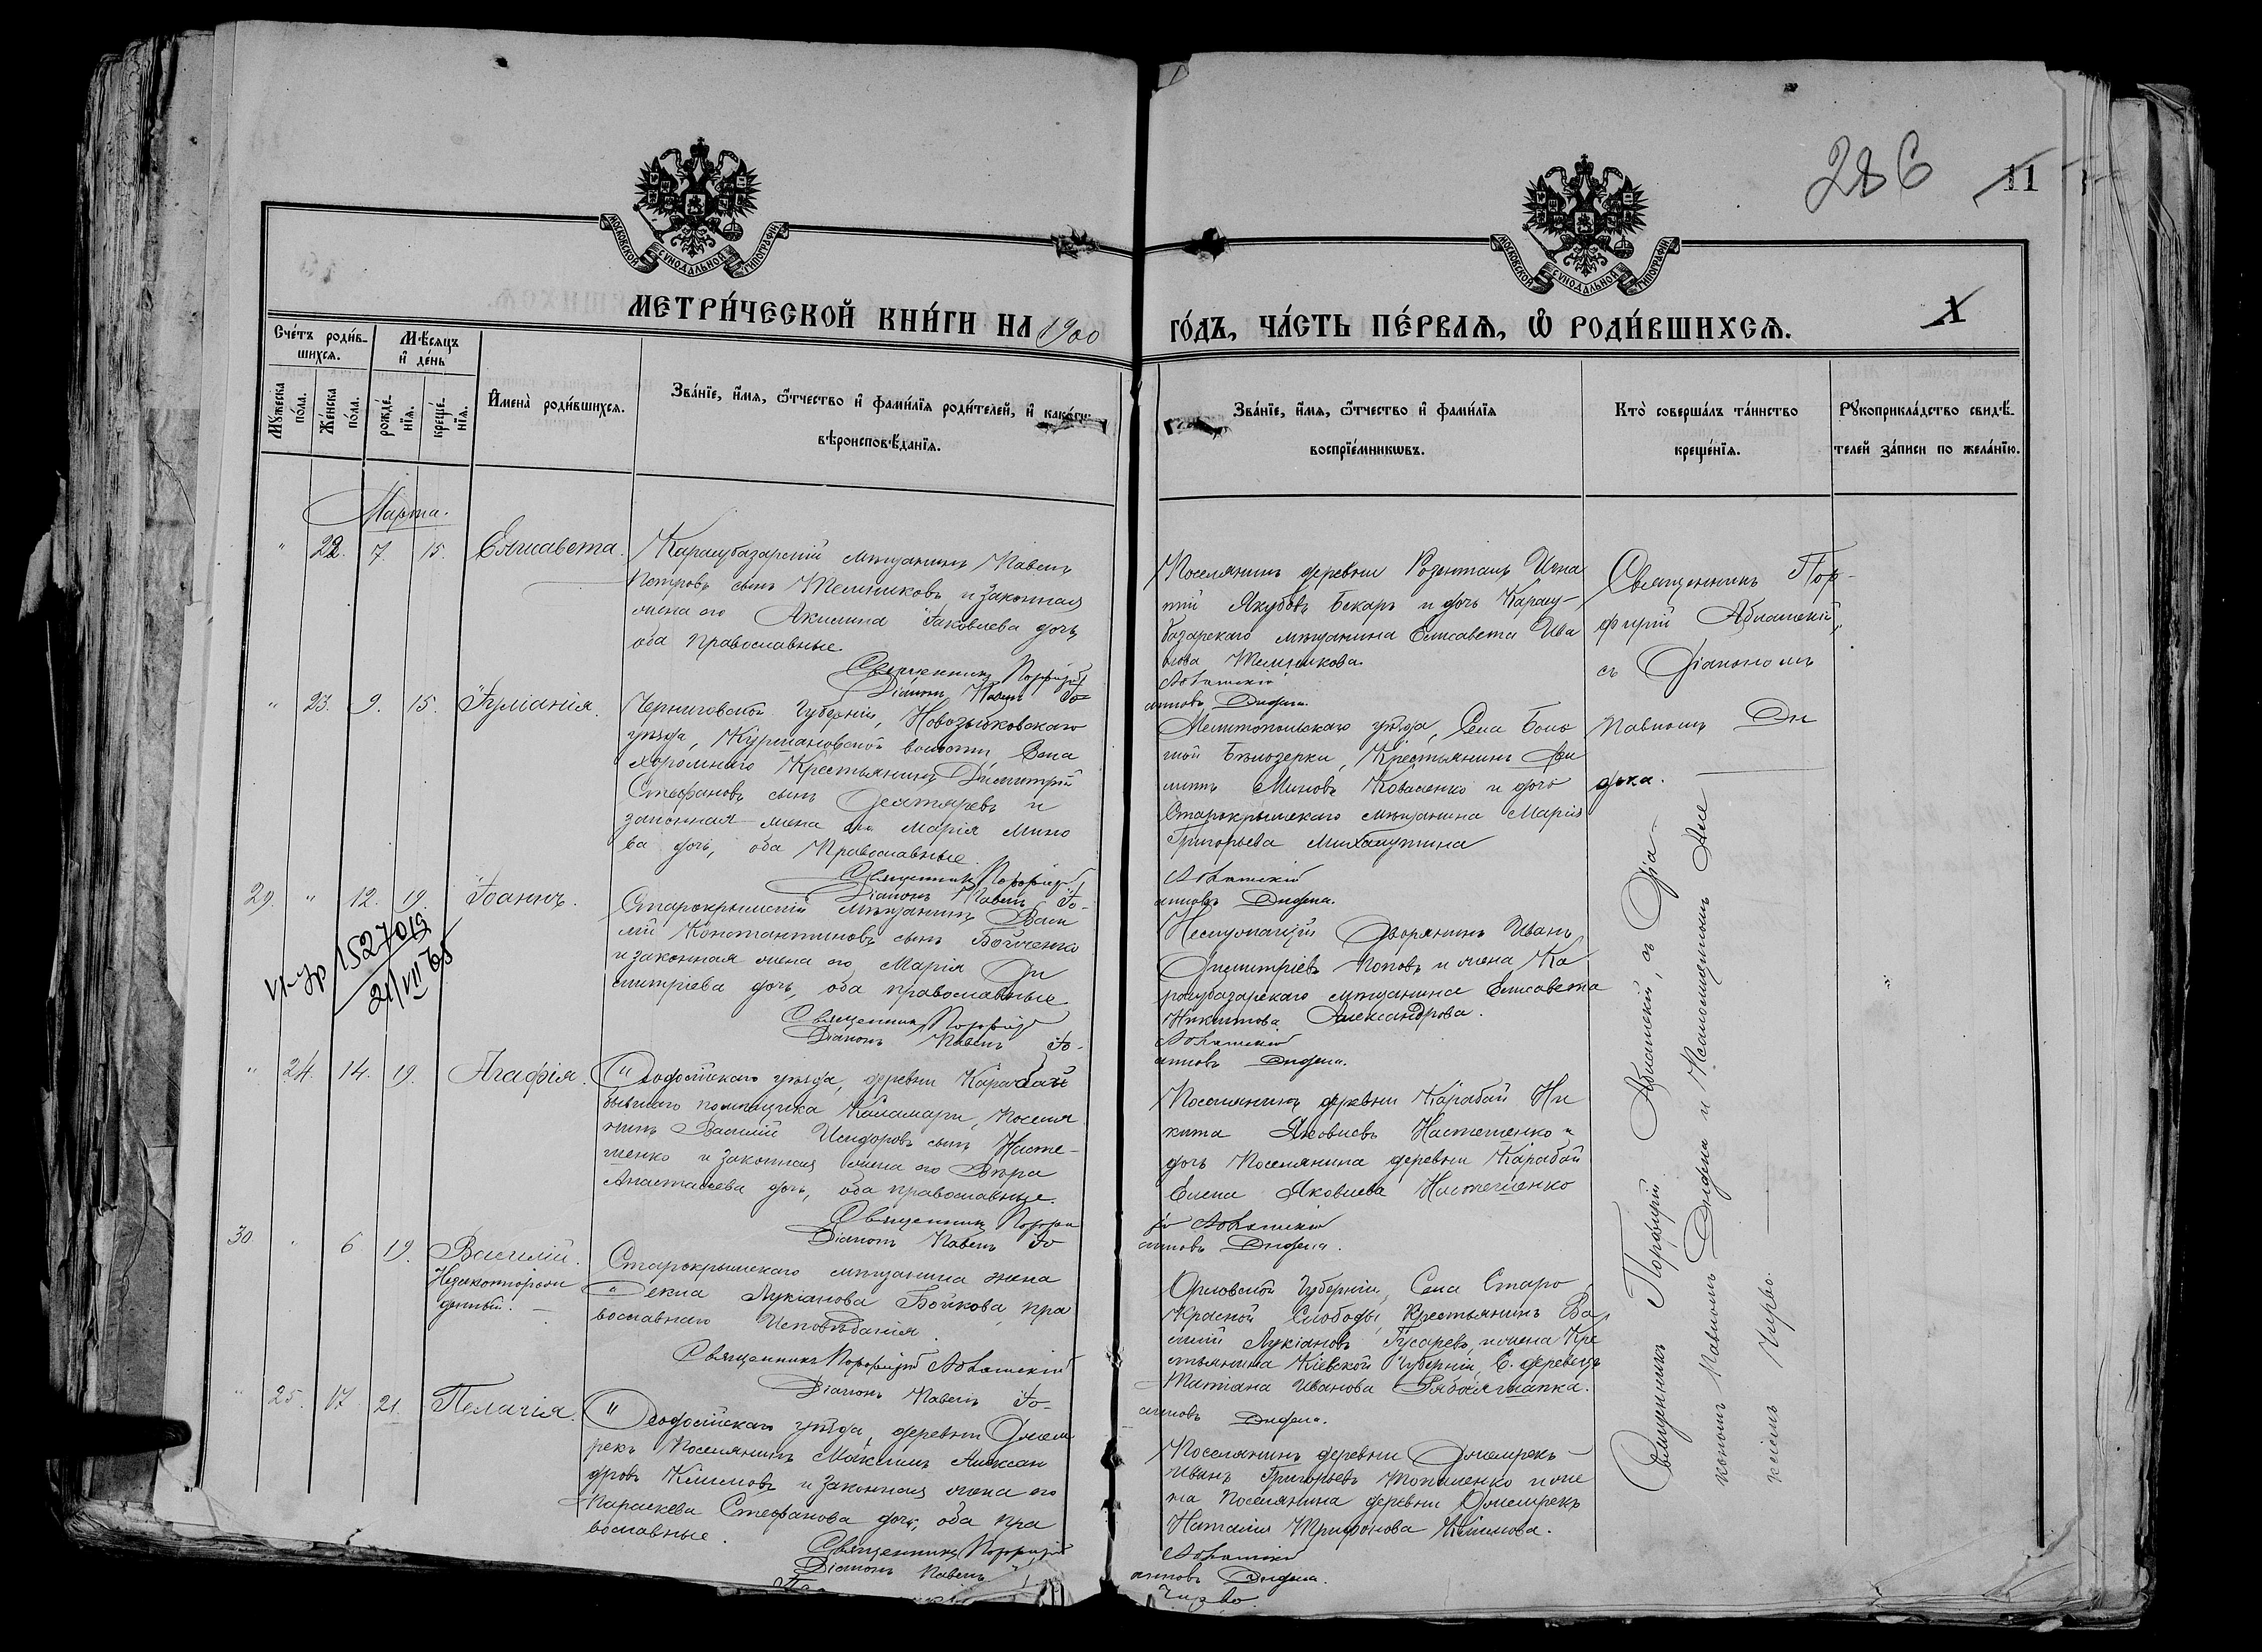 286
11
МОСКОВСКОЙ СѴНОДАЛЬНОЙ ТИПОГРАФІИ
МОСКОВСКОЙ СѴНОДАЛЬНОЙ ТИПОГРАФІИ
МЕТРИ́ЧЕСКОЙ КНИ́ГИ НА 1900
ГО́ДЪ, ЧА́СТЬ ПЕ́РВАѦ, Ѽ РОДИ́ВШИХСѦ.
Сче́тъ роди́в-
шихсѧ.
Мѣ́сѧцъ
и҆ де́нь
Мꙋ́жеска
по́ла.
Же́нска
по́ла.
рожде́-
нїѧ.
креще́-
нїѧ.
И҆мена̀ роди́вшихсѧ.
Зва́нїе, и҆́мѧ, ѻ҆́тчество и҆ фами́лїѧ роди́телей, и҆ како́гѡ
вѣроисповѣ́данїѧ.
Зва́нїе, и҆́мѧ, ѻ҆́тчество и҆ фами́лїѧ
воспрїе́мникѡвъ.
Кто̀ соверша́лъ та́инство
креще́нїѧ.
Рꙋкоприкла́дство свидѣ́-
телей за́писи по жела́нїю.
Марта.
" 22. 7. 15. Елисавета.
Карасубазарскій мѣщанинъ Павелъ
Петровъ сынъ Мельниковъ и законная
жена его Акилина Іаковлева дочь,
оба православные.
Священникъ Порфирій
Діаконъ Павелъ Іо-
Поселянинъ деревни Розенталь Игна
тій Якубовъ Бекаръ и дочь Карасу-
базарскаго мѣщанина Елисавета Ива
нова Мельникова.
Аблашскій
анновъ Дифена.
Священникъ Пор-
фирій Аблашскій,
съ Діакономъ
Павломъ Ди
фена.
" 23. 9. 15. Іуліанія.
Черниговской Губерніи, Новозыбковскаго
уѣзда, волости, Села
Крестьянинъ Димитрій
Стефановъ сынъ Дегтяревъ и
законная жена его Марія Мино
ва дочь, оба Православные.
Священникъ Порфирій
Діаконъ Павелъ Іо-
Мелитопольскаго уѣзда, Села Боль
шой Бѣлозерки, Крестьянинъ Фи
липпъ Миновъ Коваленко и дочь
Старокрымскаго мѣщанина Марія
Григорьева
Аблашскій
анновъ Дифена.
29. " 12. 19. Іоаннъ.
152709
21/VII 65
Старокрымскій мѣщанинъ Васи
лій Константиновъ сынъ Бойченко
и законная жена его Марія Ди
митріева дочь, оба православные
Священникъ Порфирій
Діаконъ Павелъ Іо-
Неслужащій Дворянинъ Иванъ
Димитріевъ Поповъ и жена Ка
расубазарскаго мѣщанина Елисавета
Никитова Александрова.
Аблашскій
анновъ Дифена.
" 24. 14. 19. Агафія.
Ѳеодосійскаго уѣзда, деревни Карабай
бывшаго помѣщика Каламари, поселя
нинъ Василій Исидоровъ сынъ Насте-
шенко и законная жена его Вѣра
Анастасіева дочь, оба православные.
Священникъ Порфи
Діаконъ Павелъ Іо
Поселянинъ деревни Карабай Ни
кита Яковлевъ Настешенко и
дочь Поселянина деревни Карабай
Елена Яковлева Настешенко
рій Аблашскій
анновъ Дифена.
30. " 6 19. Василій.
Незаконнорож
денный.
Старокрымскаго мѣщанина жена
Ѳекла Лукіанова Бойкова, пра
вославнаго Исповѣданія.
Священникъ Порфирій Аблашскій
Діаконъ Павелъ Іо-
Орловской Губерніи, Села Старо
Красной Слободы, Крестьянинъ Ва
силій Лукіановъ Гусаревъ, и жена Кре
стьянина Кіевской Губерніи,
Татіана Иванова Рябаяшапка.
анновъ Дифена.
" 25. 17. 21. Пелагія.
Ѳеодосійскаго уѣзда, деревни
рекъ Поселянинъ Максимъ Алексан
дровъ Климовъ и законная жена его
Параскева Стефанова дочь, оба пра
вославные.
Священникъ Порфирій
Діаконъ Павелъ
Поселянинъ деревни
Иванъ Григорьевъ и же
на Поселянина деревни
Наталія Трифонова Климова.
Аблашскій
анновъ Дифена.
Чирво
Священникъ Порфирій Аблашскій, съ Діа-
кономъ Павломъ Дифена и Псаломщикомъ Але
ксіемъ Чирво.